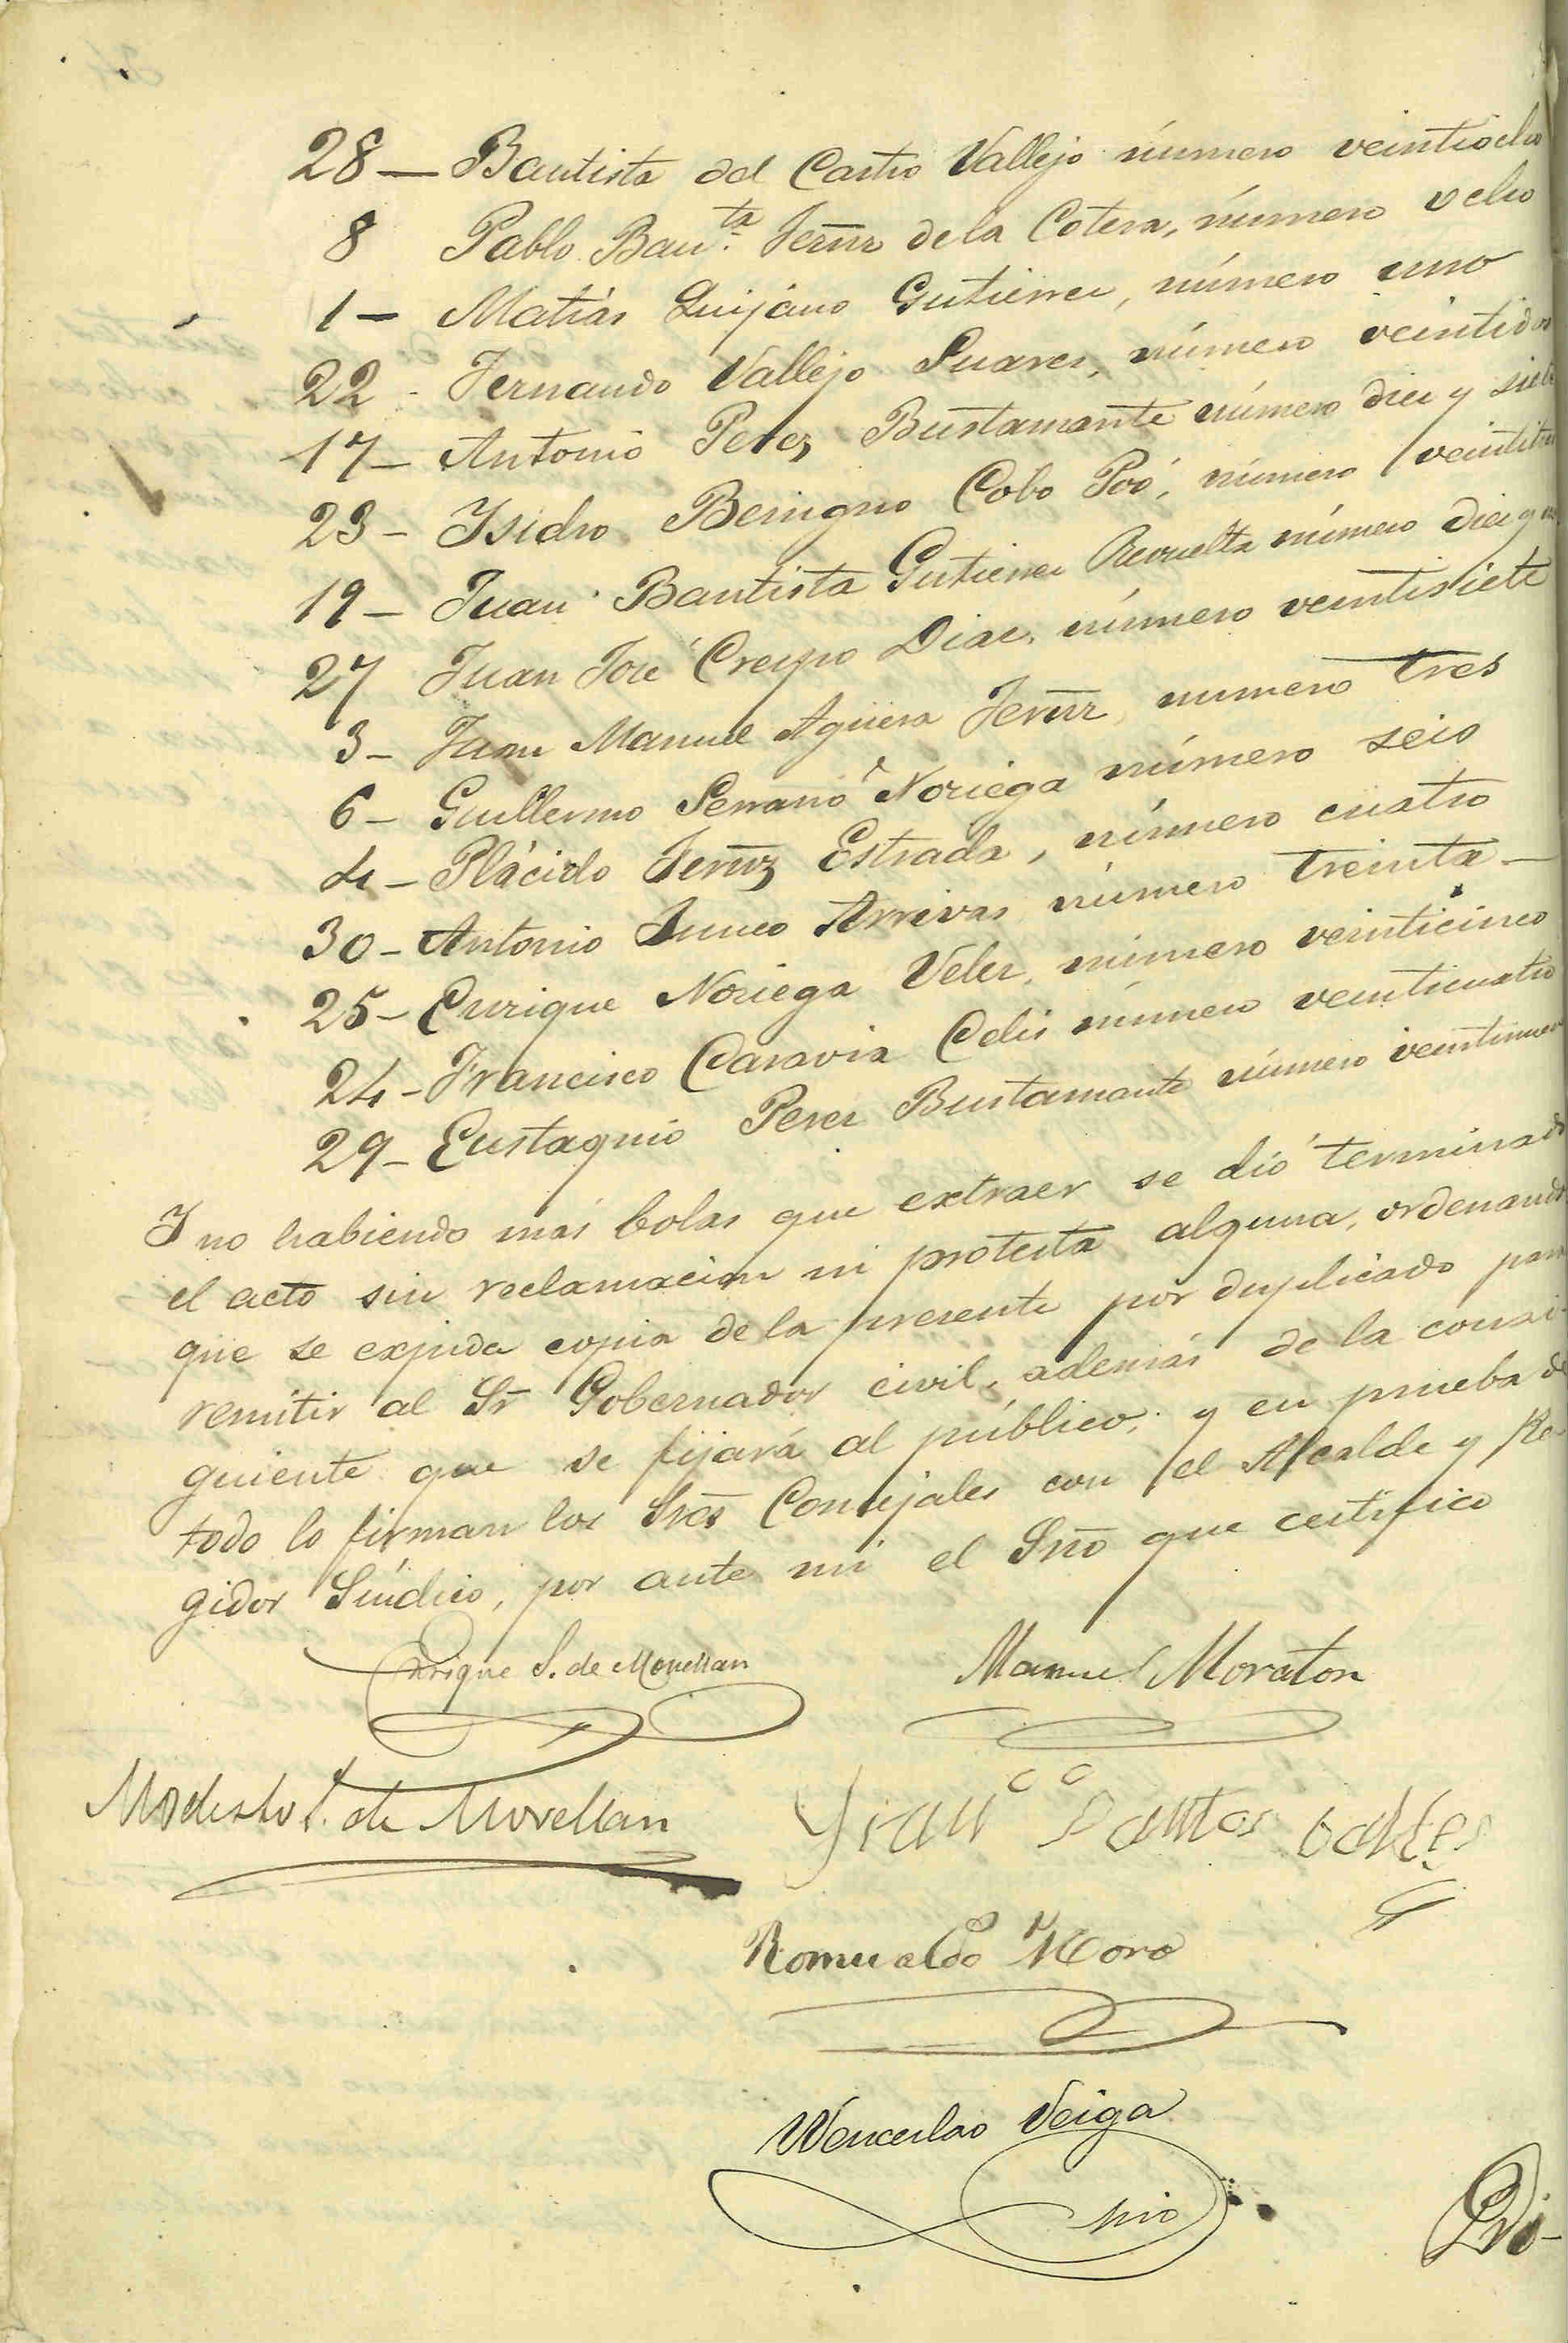 28 — Bautista del Castro Vallejo número veintiocho
8 Pablo Bau.ta Fernz de la Cotera, número ocho
1 — Matías Quijano Gutierrez, número uno
22 - Fernando Vallejo Suarez, número veintidos
17 — Antonio Perez Bustamante número diez y siete
23 — Isidro Benigno Cobo Poó, número veintitres
19 — Juan Bautista Gutierrez Revuelta número diez y
27 Juan José Crespo Diaz, número veintisiete
3 — Juan Manuel Agüera Fernz, numero tres
6 — Guillermo Serrano Noriega número seis
4 — Plácido Fernz Estrada, número cuatro
30 — Antonio Junco Arrivas número treinta —
25 — Enrique Noriega Velez, número veinticinco
24 — Francisco Caravia Celis número veinticuatro
29 — Eustaquio Perez Bustamante número veintinueve
Y no habiendo más bolas que extraer se dió terminado
el acto sin reclamacion ni protesta alguna, ordenando
que se expida copia de la presente por duplicado para
remitir al Sr Gobernador civil, además de la consi-
guiente que se fijará al público; y en prueba de
todo lo firman los Sres Concejales con el Alcalde y Re-
gidor Síndico, por ante mi el Srio que certifico
Enrique S. de Movellan
Manuel Moraton
Modesto S. de Movellan
Franco Santos
Romualdo Moro
Wenceslao Veiga
Srio